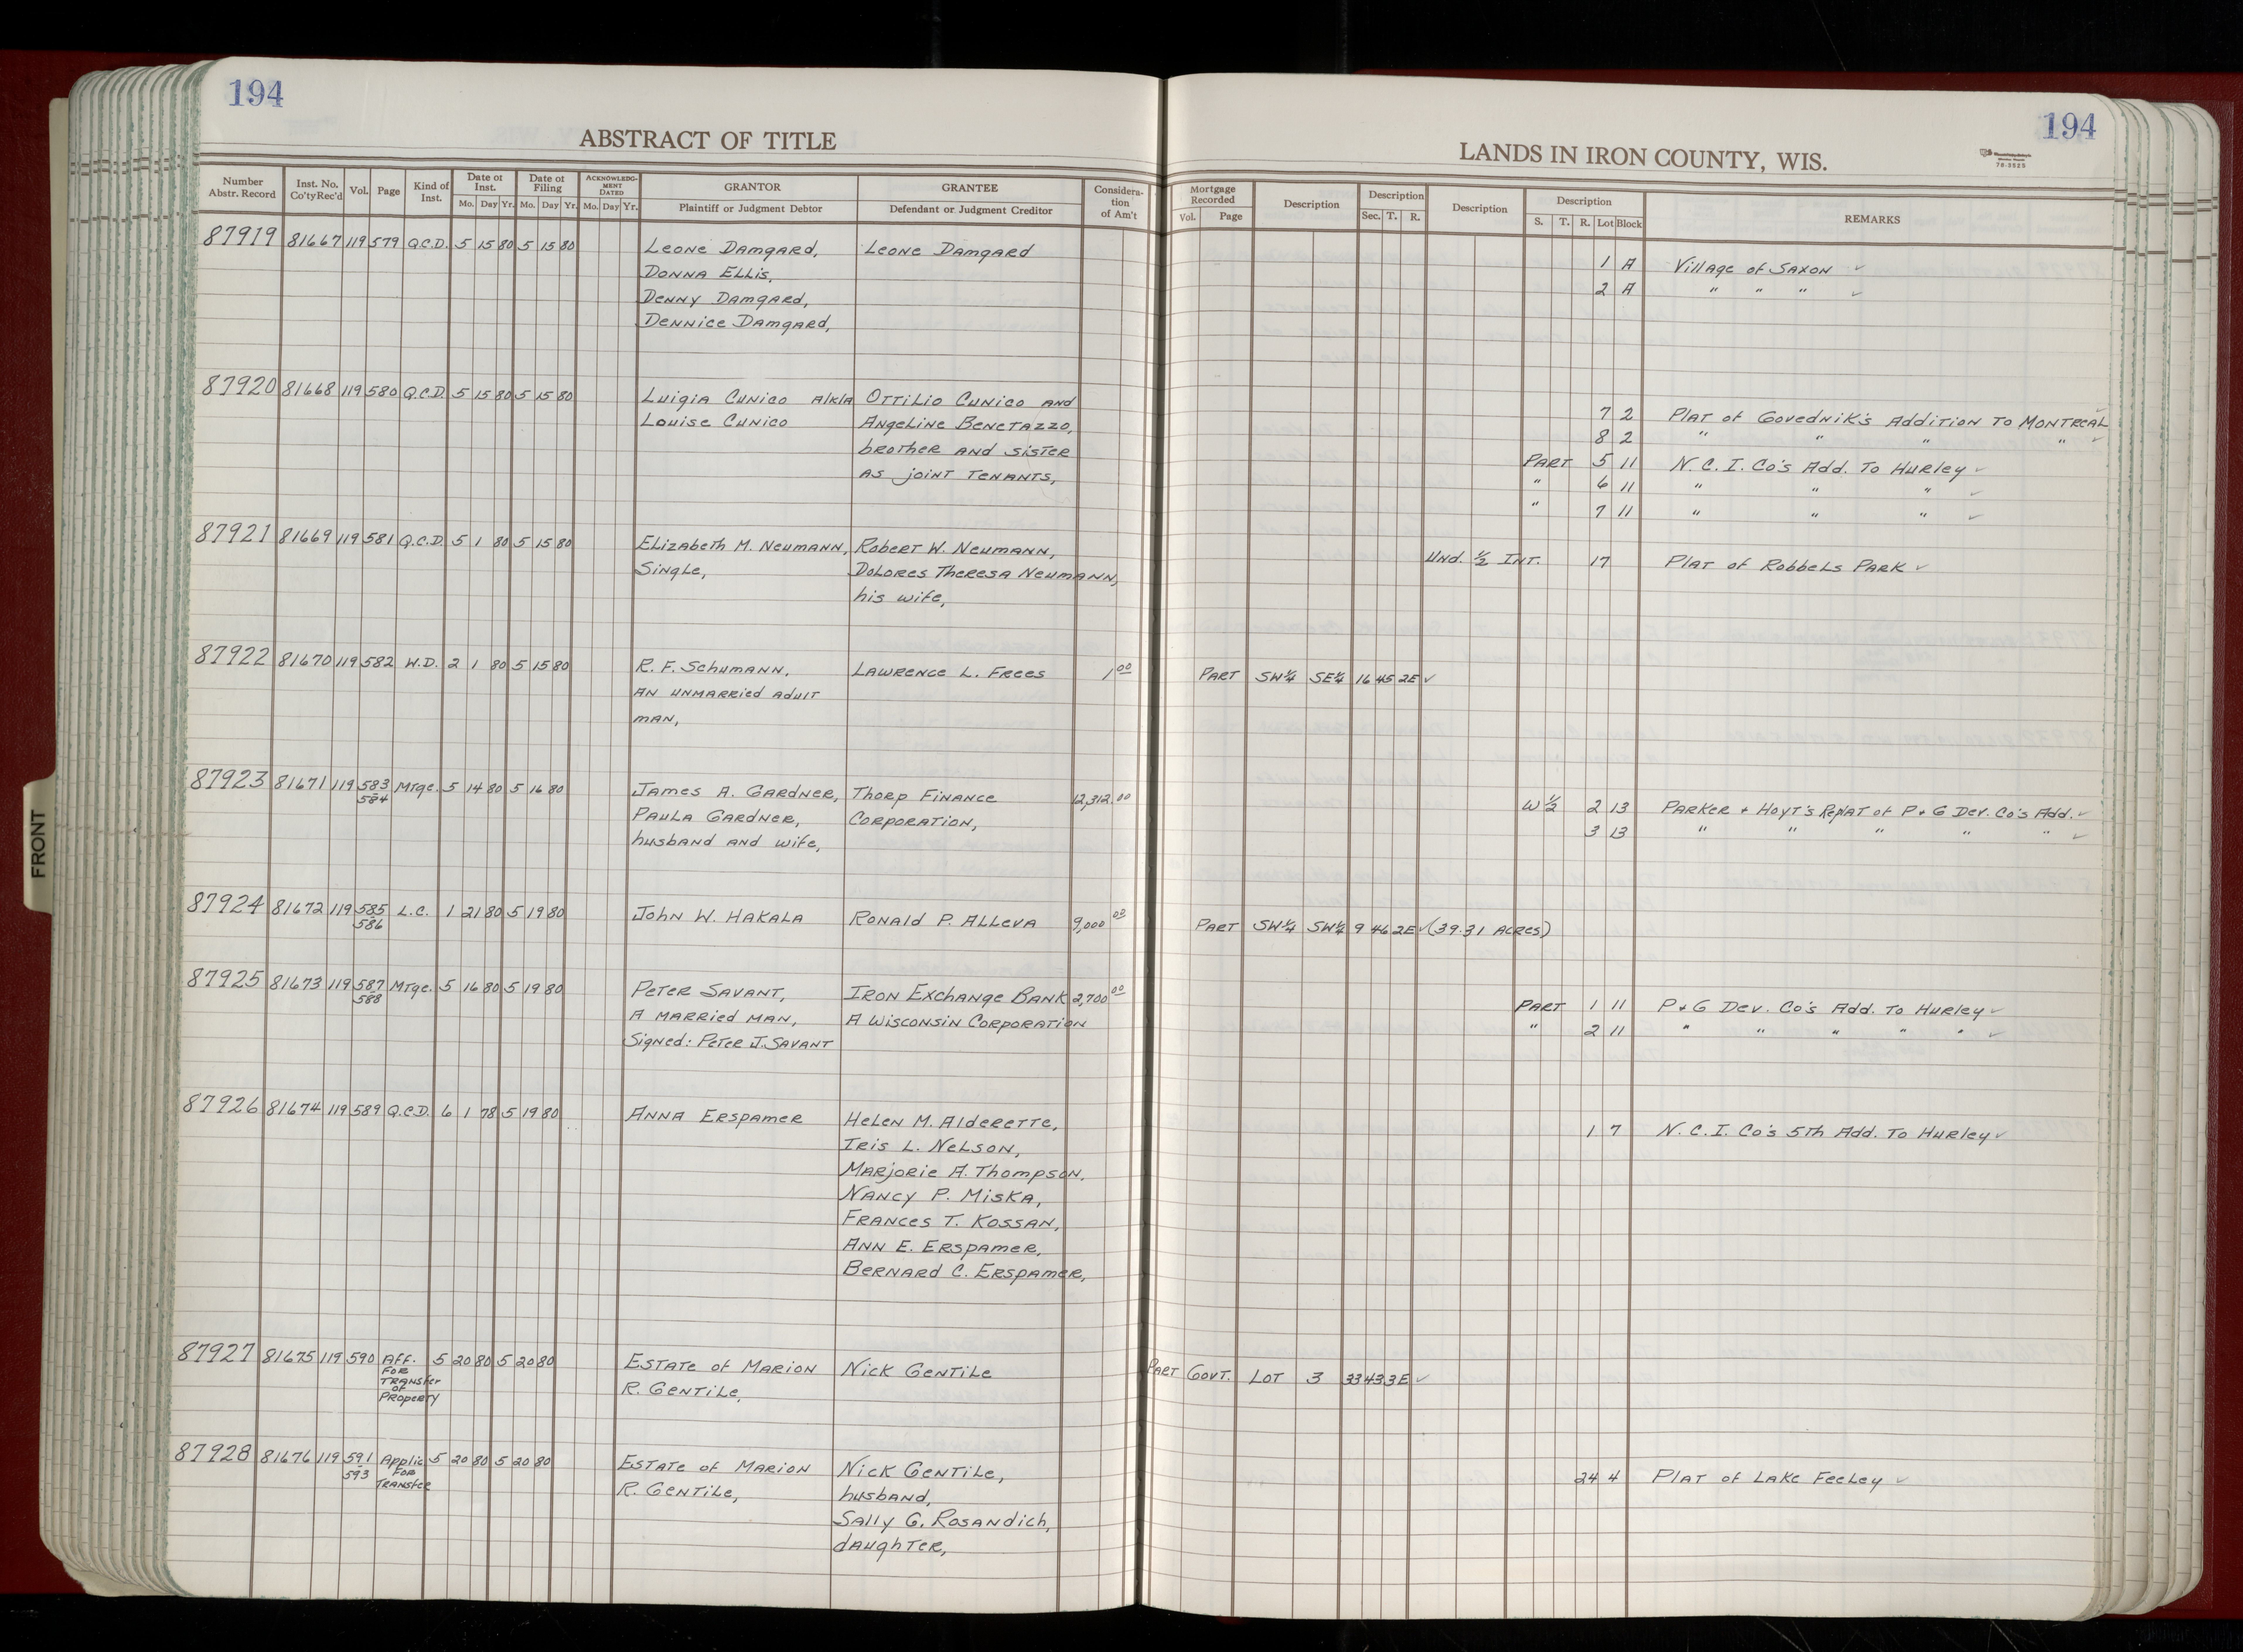 194
ABSTRACT OF TITLE
Number Abstr. Record Inst. No. Co'ty Rec'd Vol. Page Kind of Inst. Date of Inst. Mo. Day Yr. Date of Filing Mo. Day Yr. ACKNOWLEDGMENT DATED Mo. Day Yr. GRANTOR Plaintiff or Judgment Debtor GRANTEE Defendant or Judgment Creditor Consideration of Am't
194
LANDS IN IRON COUNTY, WIS.
78-3525
Mortgage Recorded Vol. Page Description Description Sec. T. R. Description Description S. T. R. Lot Block REMARKS
87919 81667 119 579 Q.C.D. 5 15 80 5 15 80 Leone Damgard, Leone Damgard
Donna Ellis, 1 A Village of Saxon ✓
Denny Damgard, 2 A " " " ✓
Dennice Damgard,
87920 81668 119 580 Q.C.D. 5 15 80 5 15 80 Luigia Cunico a/k/a Ottilio Cunico and
Louise Cunico Angeline Benetazzo, 7 2 Plat of Govednik's Addition To Montreal ✓
brother and sister 8 2 " " " " ✓
as joint tenants, Part 5 11 N.C.I. Co's Add. To Hurley ✓
" 6 11 " " " ✓
" 7 11 " " " ✓
87921 81669 119 581 Q.C.D. 5 1 80 5 15 80 Elizabeth M. Neumann, Robert W. Neumann,
Single, Dolores Theresa Neumann, Und. 1/2 Int. 17 Plat of Robbels Park ✓
his wife,
87922 81670 119 582 W.D. 2 1 80 5 15 80 R. F. Schumann, Lawrence L. Frees 1 00 Part SW¼ SE¼ 16 45 2E ✓
an unmarried adult
man,
87923 81671 119 583-584 Mtge. 5 14 80 5 16 80 James A. Gardner, Thorp Finance 12,312.00
Paula Gardner, Corporation, W½ 2 13 Parker + Hoyt's Replat of P+G Dev. Co's Add. ✓
husband and wife, 3 13 " " " " " ✓
87924 81672 119 585-586 L.C. 1 21 80 5 19 80 John W. Hakala Ronald P. Alleva 9,000 00 Part SW¼ SW¼ 9 46 2E ✓ (39.31 Acres)
87925 81673 119 587-588 Mtge. 5 16 80 5 19 80 Peter Savant, Iron Exchange Bank 2,700 00
a married man, A Wisconsin Corporation Part 1 11 P+G Dev. Co's Add. To Hurley ✓
Signed: Peter J. Savant " 2 11 " " " " " ✓
87926 81674 119 589 Q.C.D. 6 1 78 5 19 80 Anna Erspamer Helen M. Alderette,
Iris L. Nelson, 1 7 N.C.I. Co's 5th Add. To Hurley ✓
Marjorie A. Thompson,
Nancy P. Miska,
Frances T. Kossan,
Ann E. Erspamer,
Bernard C. Erspamer,
87927 81675 119 590 Aff. For Transfer of Property 5 20 80 5 20 80 Estate of Marion Nick Gentile Part Govt. Lot 3 33 43 3E ✓
R. Gentile,
87928 81676 119 591-593 Applic For Transfer 5 20 80 5 20 80 Estate of Marion Nick Gentile, 24 4 Plat of Lake Feeley ✓
R. Gentile, husband,
Sally G. Rosandich,
daughter,
FRONT